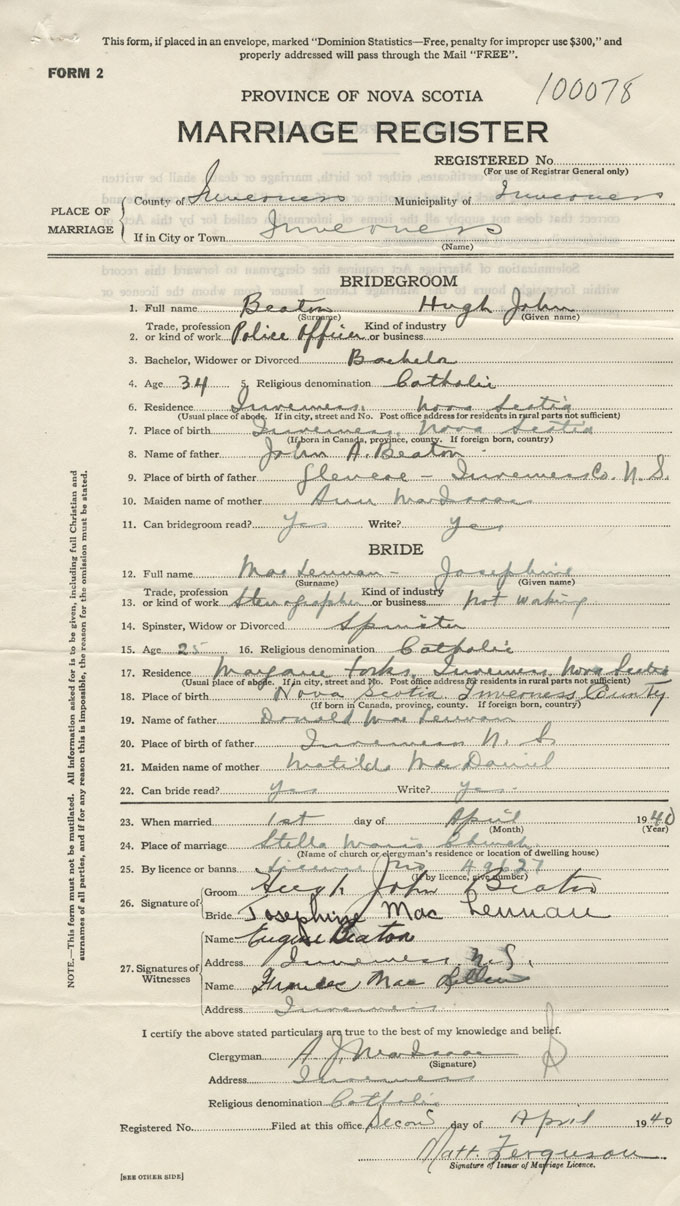 This form, if placed in an envelope, marked "Dominion Statistics—Free, penalty for improper use $300," and
properly addressed will pass through the Mail "FREE".
FORM 2
100078
PROVINCE OF NOVA SCOTIA
MARRIAGE REGISTER
REGISTERED No.
(For use of Registrar General only)
PLACE OF MARRIAGE
County of Inverness Municipality of Inverness
If in City or Town Inverness
(Name)
BRIDEGROOM
1. Full name Beaton Hugh John
(Surname) (Given name)
2. Trade, profession or kind of work Police Officer Kind of industry or business
3. Bachelor, Widower or Divorced Bachelor
4. Age 34 5. Religious denomination Catholic
6. Residence Inverness, Nova Scotia
(Usual place of abode. If in city, street and No. Post office address for residents in rural parts not sufficient)
7. Place of birth Inverness, Nova Scotia
(If born in Canada, province, county. If foreign born, country)
8. Name of father John A. Beaton
9. Place of birth of father Glencoe - Inverness Co. N. S.
10. Maiden name of mother Ann MacIsaac
11. Can bridegroom read? Yes Write? Yes
BRIDE
12. Full name MacLennan - Josephine
(Surname) (Given name)
13. Trade, profession or kind of work Stenographer Kind of industry or business not working
14. Spinster, Widow or Divorced Spinster
15. Age 25 16. Religious denomination Catholic
17. Residence Margaree Forks, Inverness, Nova Scotia
(Usual place of abode. If in city, street and No. Post office address for residents in rural parts not sufficient)
18. Place of birth Nova Scotia Inverness County
(If born in Canada, province, county. If foreign born, country)
19. Name of father Donald MacLennan
20. Place of birth of father Inverness N. S
21. Maiden name of mother Matilda MacDaniel
22. Can bride read? Yes Write? Yes
23. When married 1st day of April 1940
(Month) (Year)
24. Place of marriage Stella Maris Church
(Name of church or clergyman's residence or location of dwelling house)
25. By licence or banns License No 49627
(If by licence, give number)
26. Signature of
Groom Hugh John Beaton
Bride Josephine Mac Lennan
27. Signatures of Witnesses
Name Eugene Beaton
Address Inverness N. S.
Name Frances Mac Lellan
Address Inverness
I certify the above stated particulars are true to the best of my knowledge and belief.
Clergyman A. J. MacIsaac
(Signature)
Address Inverness
Religious denomination Catholic
Registered No. Filed at this office Second day of April 1940
Matt. Ferguson
Signature of Issuer of Marriage Licence.
[SEE OTHER SIDE]
NOTE.—This form must not be mutilated. All information asked for is to be given, including full Christian and
surnames of all parties, and if for any reason this is impossible, the reason for the omission must be stated.